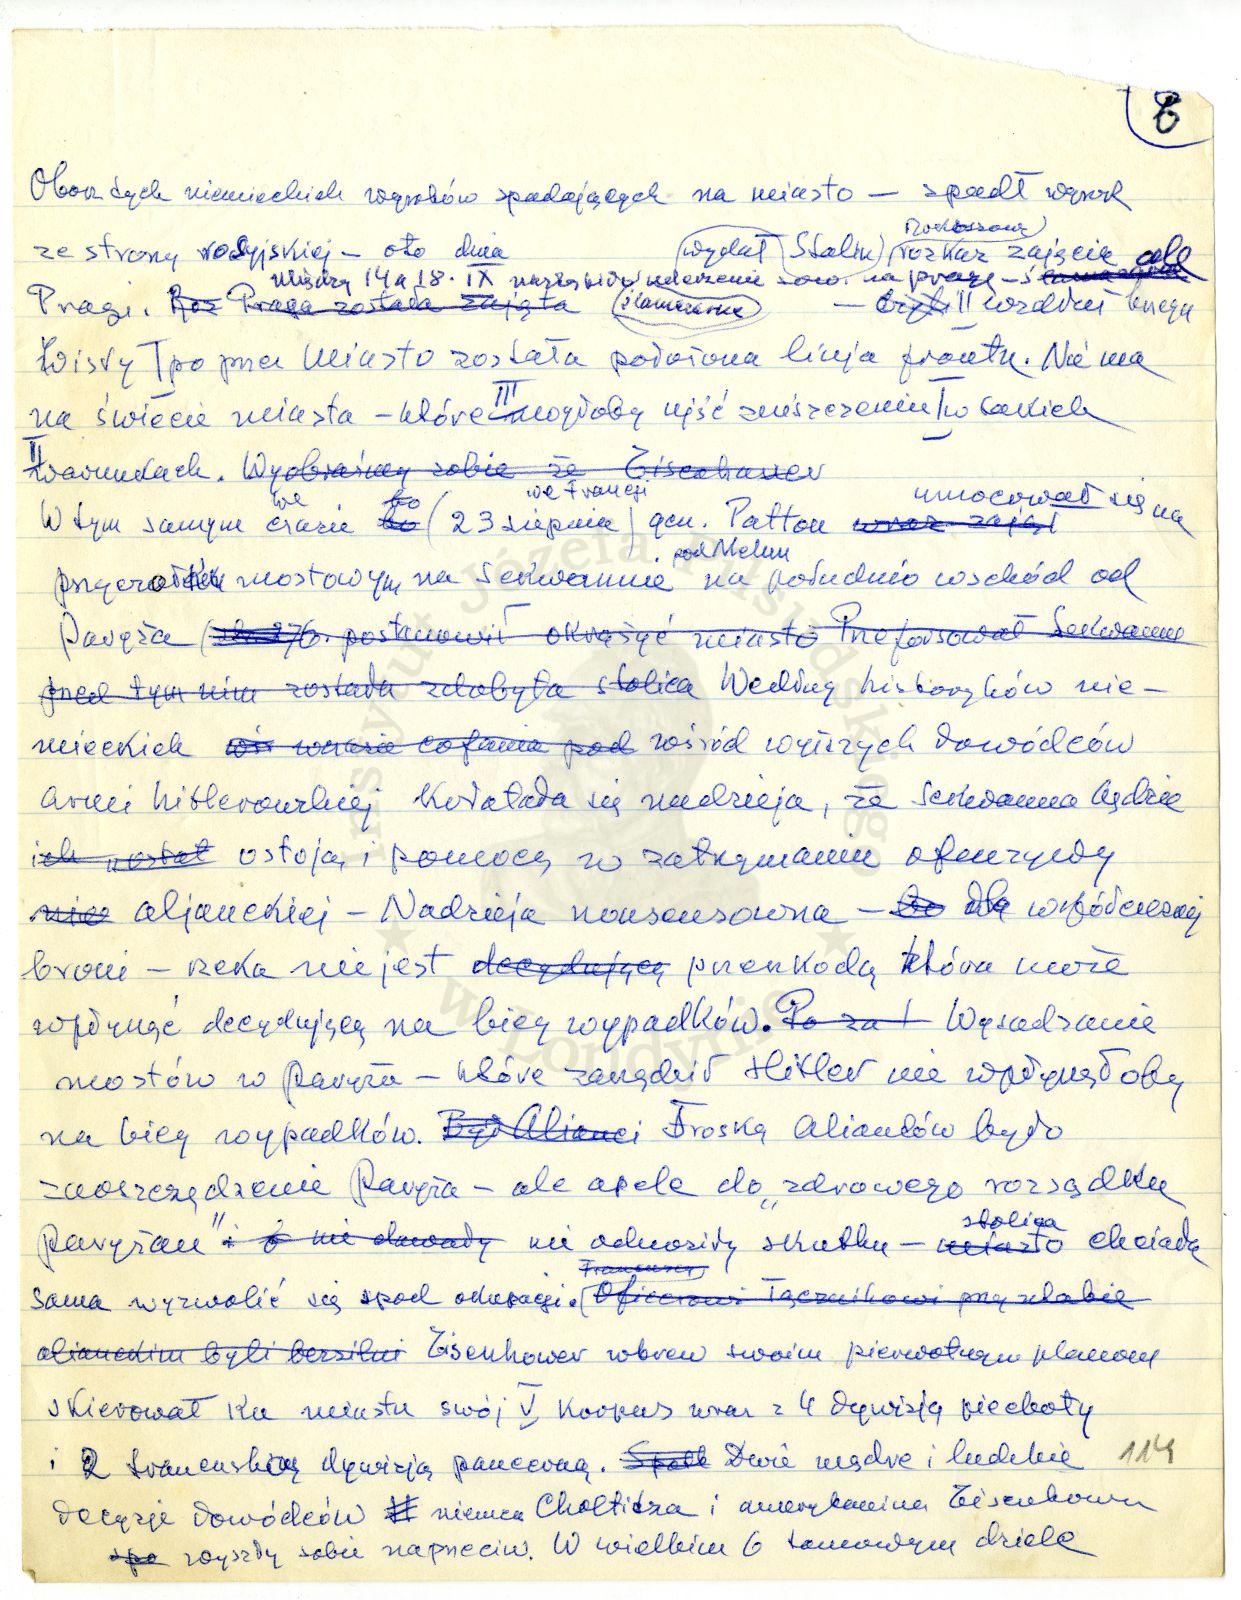 8
Obok tych niemieckich wyroków spadających na miasto — spadł wyrok
Rokossows
ze strony rosyjskiej — oto dnia wydał Stalin rozkaz zajęcia
między 14 a 18. IX nastąpiło uderzenie sow. na pragę —
Pragi. Praga została zajęta — czyli II wzdłuż brzegu
Wisły I poprzez Miasto została położona linja frontu. Nie ma
na świecie miasta — które III mogłoby ujść zniszczeniu I w takich
II warunkach. Wyobraźmy sobie że Eisenhauer
we Francji umocował się na
W tym samym czasie (23 sierpnia) gen. Patton wraz zajął
pod Melun
przyczółku mostowym na Sekwannie na południo wschód od
Paryża postanowił okrążyć miasto Przeforsował Sekwannę
przed tym nim została zdobyta stolica Według historyków nie—
mieckich w czasie cofania pod wśród wyższych dowódców
armi hitlerowskiej kołatała się nadzieja, że Sekwanna będzie
ich ostat ostoją i pomocą w zatrzymaniu ofenzywy
nie aljanckiej — Nadzieja nonsensowna — dla współczesnej
broni — rzeka nie jest decydującą przeszkodą która może
wpłynąć decydującą na bieg wypadków. Po za t Wysadzanie
mostów w Paryżu — które zarządził Hitler nie wpłynęłoby
na bieg wypadków. Był Alianci Troską Aliantów było
zaoszczędzenie Paryża — ale apele do „zdrowego rozsądku
stolica
Paryżan" i nie odnosiły skutku — miasto chciała
Francuscy
sama wyzwolić się spod okupacji. Oficerowi łącznikowi przy sztabie
alianckim byli bezsilni Eisenhower wbrew swoim pierwotnym planom
skierował ku miastu swój V Korpus wraz z 4 dywizją piechoty
i 2 francuską dywizją pancerną. Dwie mądre i ludzkie 114
decyzje dowódców niemca Choltitza i amerykanina Eisenhowera
wyszły sobie naprzeciw. W wielkim 6 tomowym dziele